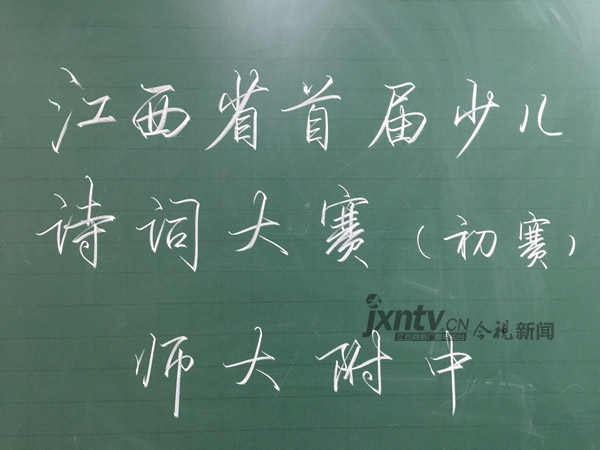 江西省首届少儿
诗词大赛（初赛）
jxntv.CN 今视新闻
师大附中